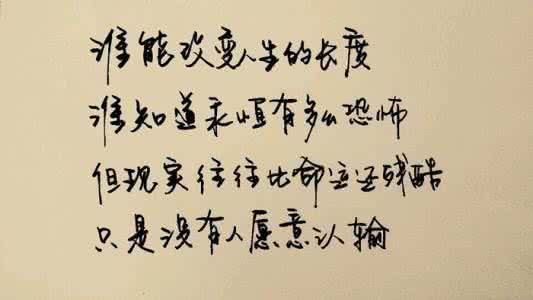 谁能改变人生的长度
谁知道永恒有多么恐怖
但现实往往比命运还残酷
只是没有人愿意认输